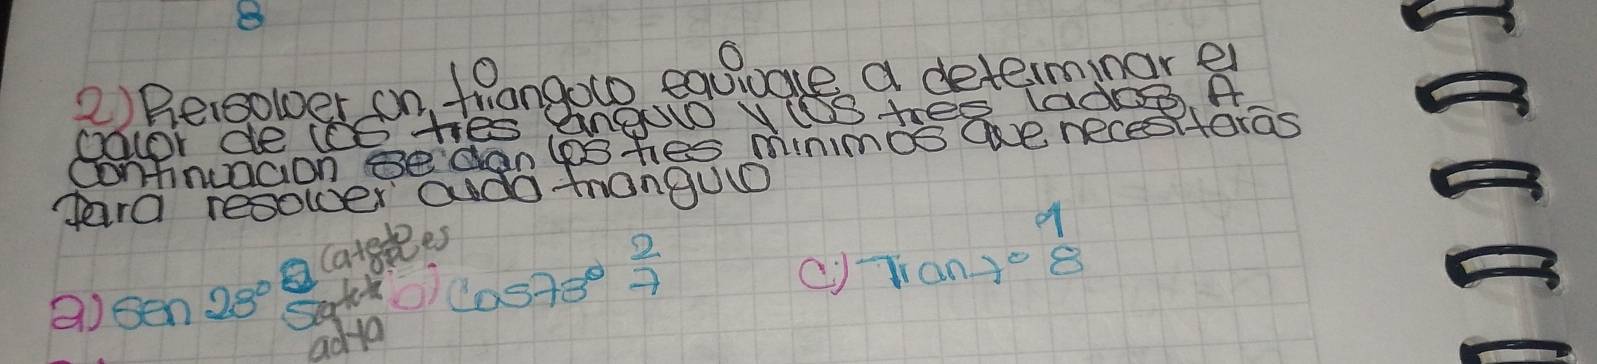 8
2) Resolver un triangulo equivale a determinar el
valor de los tres angulo y los tres lados. A
continuacion se dan los tres minimos que necesitaras
para resolver cada triangulo
a) sen 28° 8 Catetos b) cos 78° 2/7 c) Tan 7° 9/8
5